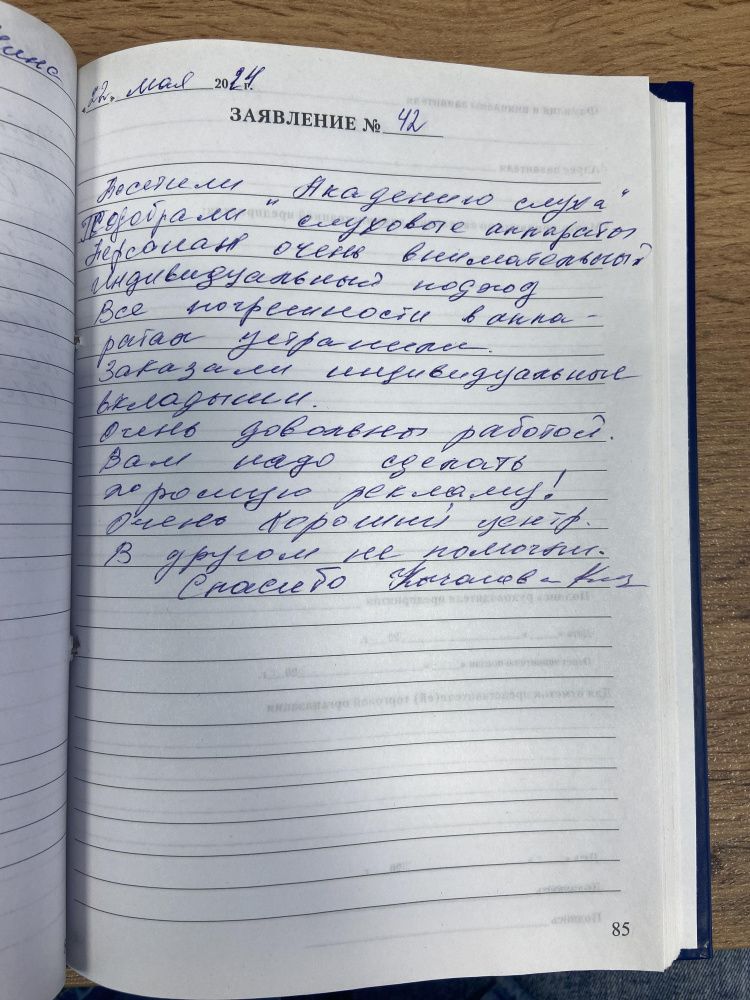 "22" мая 2024 г.
ЗАЯВЛЕНИЕ № 42
Посетили "Академию слуха"
Подобрали слуховые аппараты
Персонал очень внимательный
Индивидуальный подход
Все погрешности в аппа-
ратах устранили.
Заказали индивидуальные
вкладыши.
Очень довольны работой.
Вам надо сделать
хорошую рекламу!
Очень хороший центр.
В другом не помогли.
Спасибо
85